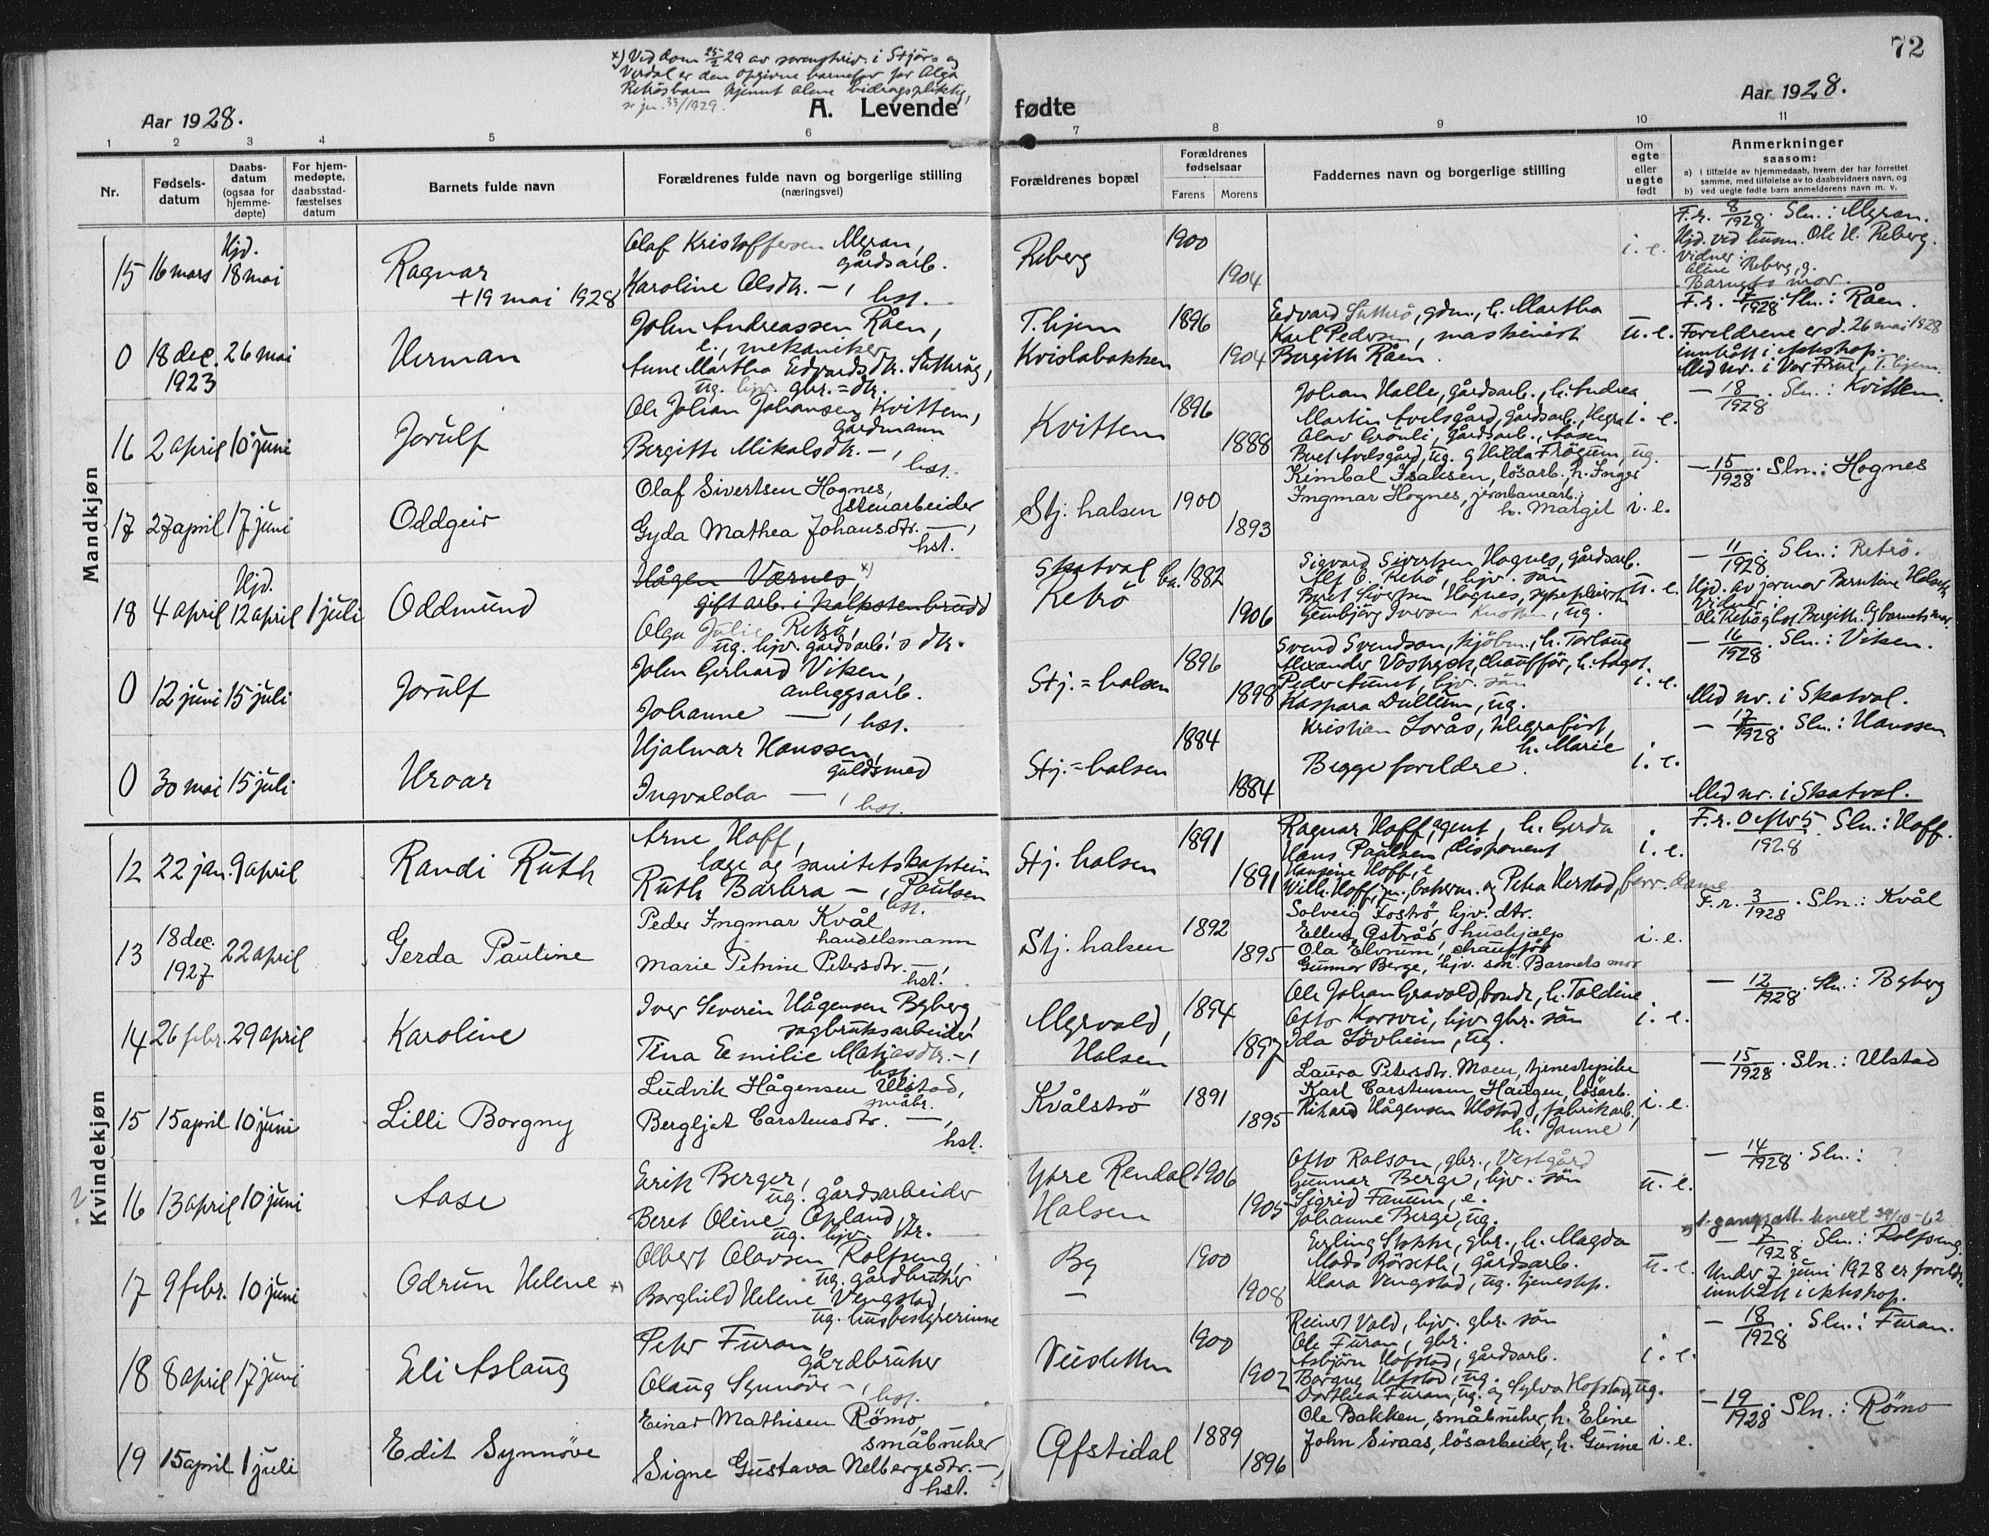 72
x) Ved dom 25/2 29 av sorenskriv. i Stjør- og
Verdal er den opgivne barnefar for Olga
Retrøs barn kjennt alene bidragspliktig,
se jn. 33/1929.
Aar 1928.
A. Levende fødte
Aar 1928.
1 2 3 4 5 6 7 8 9 10 11
Nr.
Fødsels-
datum
Daabs-
datum
(ogsaa for
hjemme-
døpte)
For hjem-
medøpte,
daabsstad-
fæstelses
datum
Barnets fulde navn
Forældrenes fulde navn og borgerlige stilling
(næringsvei)
Forældrenes bopæl
Forældrenes
fødselsaar
Farens Morens
Faddernes navn og borgerlige stilling
Om
egte
eller
uegte
født
Anmerkninger
saasom:
a) i tilfælde av hjemmedaab, hvem der har forrettet
samme, med tilføielse av to daabsvidners navn, og
b) ved uegte fødte barn anmelderens navn m. v.
Mandkjøn
15 16 mars Hjd. 18 mai
Ragnar
+ 19 mai 1928
Olaf Kristoffersen Mæran,
gårdsarb.
Karoline Olsdtr. — , hst.
Reberg
1900
1904
i. e.
F. r. 8/1928. Sln.: Meran.
Hjd. ved husm. Ole H. Reberg.
Vidner:
Aline Reberg, g.
Barnets mor.
0 18 dec. 1923 26 mai
Herman
John Andreassen Råen,
e., mekaniker
Anne Martha Edvardsdtr.
ug. hjv. gbr.=dtr.
T.hjem
Kvislabakken
1896
1904
Edvard gdm., h. Martha
Karl Pedersen, maskinist
Bergith Råen.
u. e.
F. r. 7/1928. Sln.: Råen.
Foreldrene er d. 26 mai 1928
inntrått i ektskap.
Med nr. i Vor Frue, T.hjem.
16 2 april 10 juni
Jorulf
Ole Johan Johansen Kvittem,
gårdmann
Bergitte Mikalsdtr. — , hst.
Kvittem
1896
1888
Johan Halle, gårdsarb., h. Andrea
Martin Avelsgård, gårdsarb., Hegra
Olav Grønli, gårdsarb., Åasen
Beret Avelsgård, ug. og Hilda Frøgum, ug.
i. e.
— 18/1928. Sln.: Kvittem.
17 27 april 17 juni
Oddgeir
Olaf Sivertsen Hognes,
stenarbeider
Gyda Mathea Johansdtr. — ,
hst.
Stj. halsen
1900
1893
Kimbal Isaksen, løsarb., h. Inger
Ingmar Hognes, jernbanearb.,
h. Margit
i. e.
— 15/1928. Sln.: Hognes
18 4 april Hjd. 12 april 1 juli
Oddmund
Hågen Værnes, x)
gift arb. i kalkstenbrudd
Olga Julie Retrø,
ug. hjv. gårdsarb.'s dtr.
Skatval
Retrø
ca. 1882
1906
Sigvard Sivertsen Hognes, gårdsarb.
Alf O. Retrø, hjv. søn
Beret Sivertsen Hognes,
Gunbjørg ug.
u. e.
— 11/1928. Sln.: Retrø.
Hjd. av jormor Berntine
Vidner:
Ole Retrø og hst. Birgith. og barnets mor.
0 12 juni 15 juli
Jorulf
John Gerhard Viken,
anleggsarb.
Johanne — , hst.
Stj.=halsen
1896
1898
Svend Svendson, kjøbm., h. Torlaug
Alexander chauffør, h. Aagot.
Peder Aunet, hjv. søn
Kaspara Dullum, ug.
i. e.
— 16/1928. Sln.: Viken.
Med nr. i Skatval.
0 30 mai 15 juli
Hroar
Hjalmar Hanssen,
guldsmed
Ingvalda — , hst.
Stj.=halsen
1884
1884
Kristian Lorås, telegrafist,
h. Marie
Begge foreldre.
i. e.
— 17/1928. Sln.: Hanssen
Med nr. i Skatval.
Kvindekjøn
12 22 jan. 9 april
Randi Ruth
Arne Hoff,
læge og sanitetskaptein
Ruth Barbra — , Paulsen
hst.
Stj. halsen
1891
1891
Ragnar Hoff, agent, h. Gerda
Hans Paulsen, disponent
Hansine Hoff, e.
Wilh. Hoff, jn., bokerm. og Petra Herstad, forr. dame
i. e.
F. r. 5/1928. Sln.: Hoff.
13 18 dec. 1927 22 april
Gerda Pauline
Peder Ingmar Kvål
handelsmann
Marie Petrine Petersdtr. — ,
hst.
Stj. halsen
1892
1895
Solveig Fostrø, hjv. dtr.
Ellen Østrås, hushjelp
Ola Elvrum, chauffør
Gunnar Berge, hjv. søn. Barnets mor
i. e.
F. r. 3/1928. Sln.: Kvål
14 26 febr. 29 april
Karoline
Iver Severin Hågensen Byberg,
sagbruksarbeider
Tina Emilie Matiasdtr. — ,
hst.
Mervold,
Halsen
1894
1897
Ole Johan Gravold, bonde, h. Toldine
Otto Korsvei, hjv. gbr. søn
Ida Løvheim, ug.
i. e.
— 12/1928. Sln.: Byberg
15 15 april 10 juni
Lilli Borgny
Ludvik Hågensen Ulstad,
småbr.
Bergljot Carstensdtr. — ,
hst.
Kvålstrø
1891
1895
Laura Petersdtr. Moen, tjenestepike
Karl Carstensen Haugen, løsarb.
Rikard Hågensen Ulstad, fabrikarb.,
h. Janne
i. e.
— 15/1928. Sln.: Ulstad
16 13 april 10 juni
Aase
Erik Berger,
ug. gårdsarbeider
Beret Oline Opland,
ug. hjv. dtr.
Ytre Rendal
Halsen
1906
1905
Otto Rolson, gbr., Vestgård
Gunnar Berge, hjv. søn
Sigrid Fanum, e.
Johanne Berge, ug.
u. e.
— 14/1928. Sln.: ?
17 9 febr. 10 juni
Odrun Helene x)
Olbert Olavsen Rolfseng,
ug. gårdbruker
Borghild Helene Vengstad,
ug. husbestyrerinne
By
—
1900
1908
Erling Stokke, gbr., h. Magda
Mads Børseth, gårdsarb.
Klara Vengstad, ug. tjenestep.
u. e.
x) 1. gangsatt. tinert 29/10-62
— 7/1928. Sln.: Rolfseng.
Under 7 juni 1928 er foreldr.
inntrått i ektskap.
18 8 april 17 juni
Eli Aslaug
Peter Furan,
gårdbruker
Olaug Synnøve — , hst.
1900
1902
Reinert Vold, hjv. gbr. søn
Ole Furan, gbr.
Asbjørn Hofstad, gårdsarb.
Borgny Hofstad, ug.
Dorthea Furan, ug. og Sylva Hofstad, ug.
i. e.
— 18/1928. Sln.: Furan.
19 15 april 1 juli
Edit Synnøve
Einar Mathisen Rømo
småbruker
Signe Gustava Nelbergsdtr. — ,
hst.
Øfstidal
1889
1896
Ole Bakken, småbruker, h. Eline
John Siraas, løsarbeider, h. Gurine
i. e.
— 19/1928. Sln.: Rømo